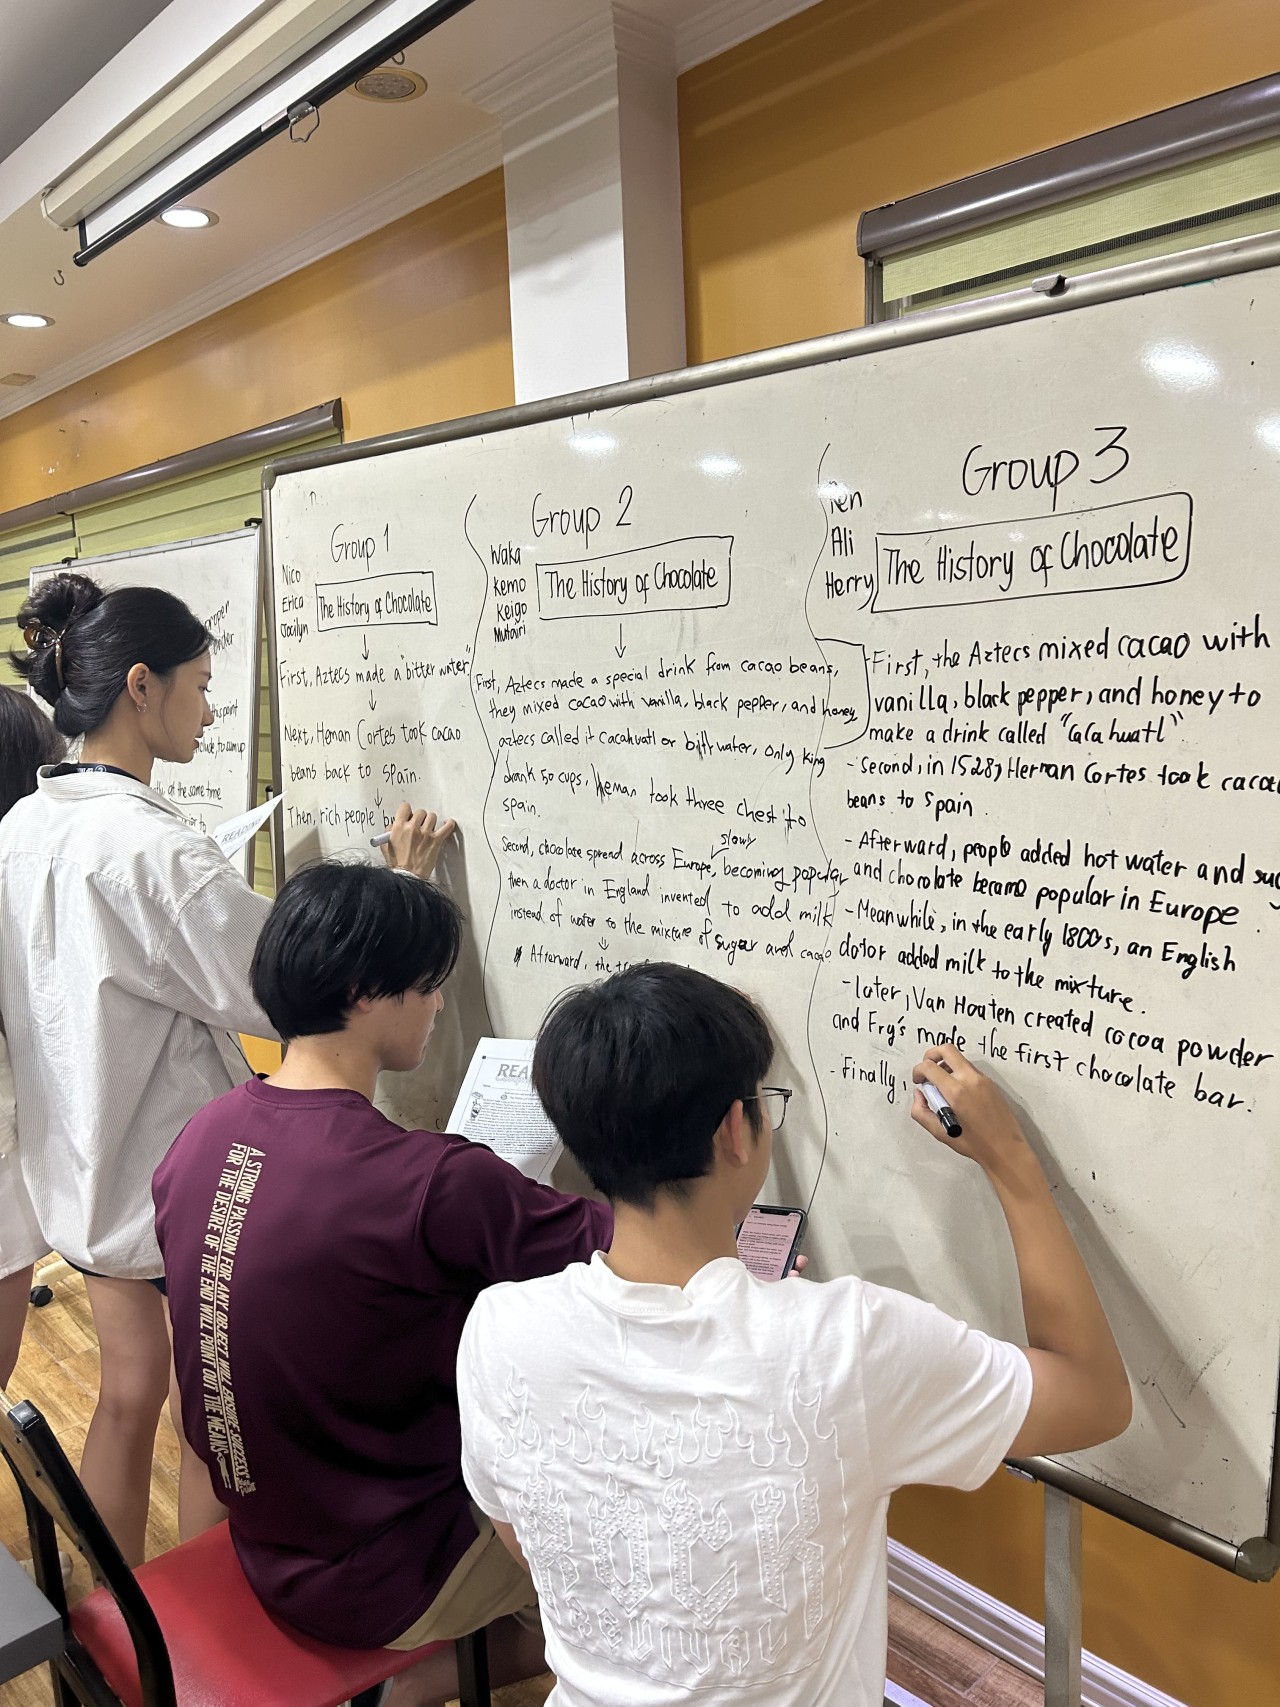 Group 1
Nico
Erica
Jocilyn
The History of Chocolate
First, Aztecs made a "bitter water."
Next, Heman Cortes took cacao
beans back to spain.
Then, rich people
Group 2
Waka
Kemo
Keigo
Mutairi
The History of Chocolate
First, Aztecs made a special drink from cacao beans,
they mixed cacao with vanilla, black pepper, and honey
aztecs called it cacahuatl or water, only king
drank 50 cups, heman took three chest to
spain.
slowly
Second, chocolate spread across Europe, becoming popular
then a doctor in England invented to add milk
instead of water to the mixture of sugar and cacao
Afterward, the
Group 3
Ali
Herry
The History of Chocolate
First, the Aztecs mixed cacao with
vanilla, black pepper, and honey to
make a drink called "Cacahuatl".
- Second, in 1528, Hernan Cortes took cacao
beans to spain
- Afterward, people added hot water and
and chocolate became popular in Europe.
- Meanwhile, in the early 1800s, an English
dotor added milk to the mixture.
- later, Van Houten created cocoa powder
and Fry's made the first chocolate bar.
- Finally,
this point
to sum up
at the same time
READING
REA
A STRONG PASSION FOR ANY OBJECT WILL ENSURE SUCCESS,
FOR THE DESIRE OF THE END WILL POINT OUT THE MEANS
ROCK
REVIVAL